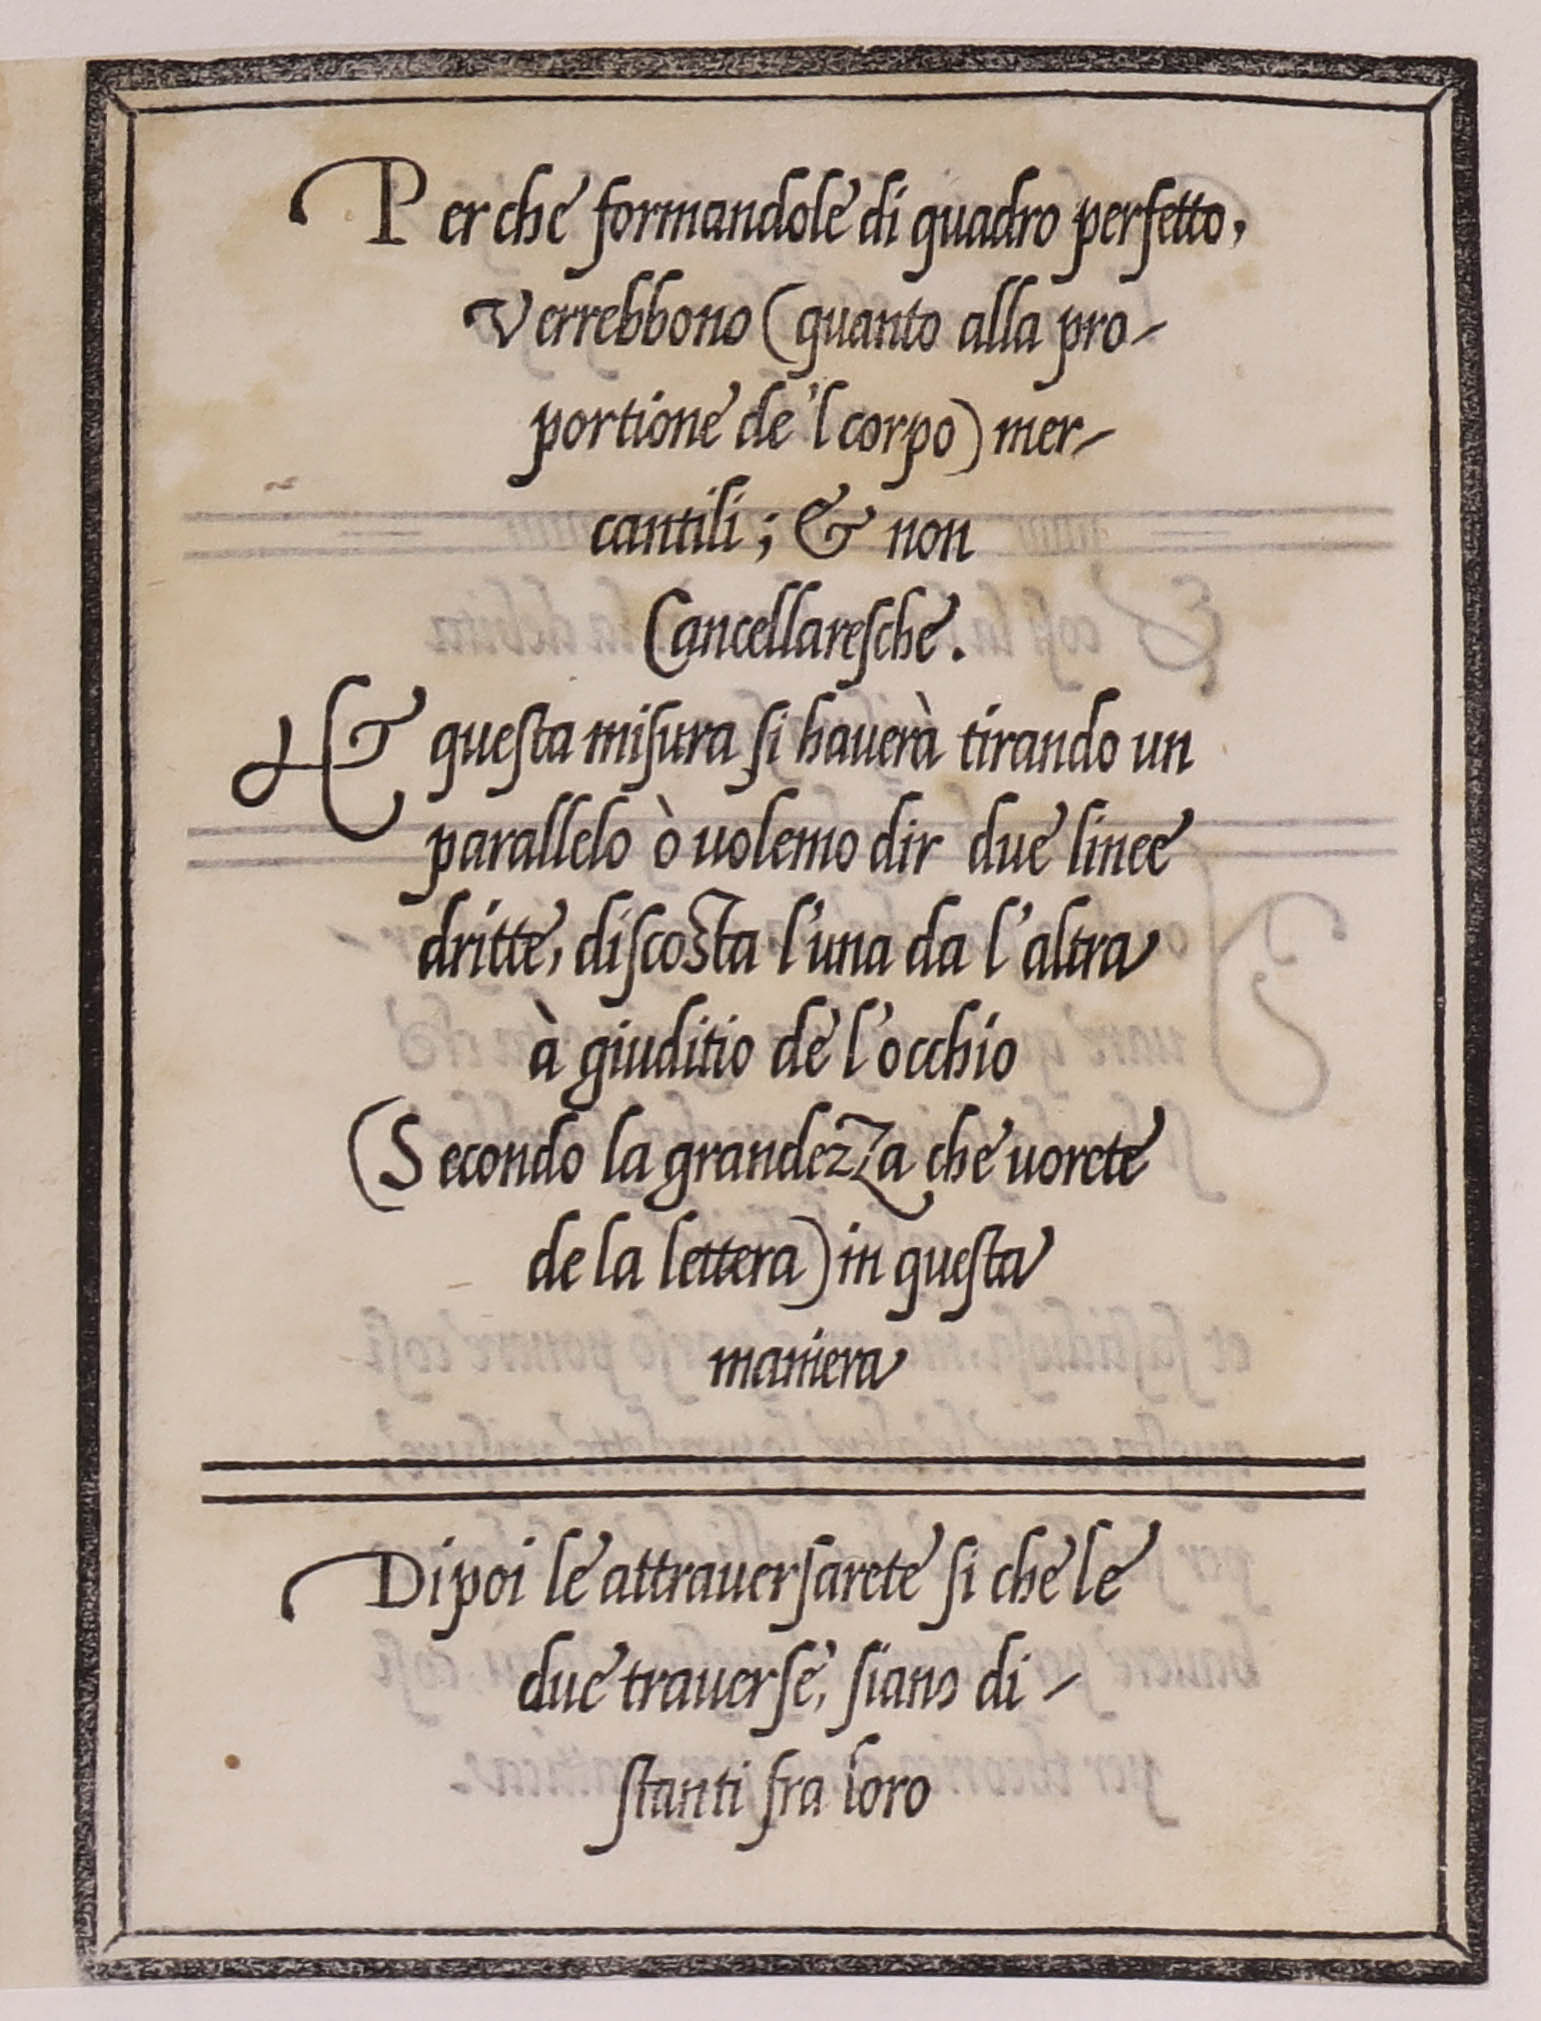 Perche formandole di quadro perfetto,
Verrebbono (quanto alla pro-
portione de'l corpo) mer-
cantili; & non
Cancellaresche.
& questa misura si hauerà tirando un
parallelo ò uolemo dir due linee
dritte, discosta l'una da l'altra
à giuditio de l'occhio
(Secondo la grandezza che uorete
de la lettera) in questa
maniera
Dipoi le attrauersarete si che le
due trauerse, siano di-
stanti fra loro